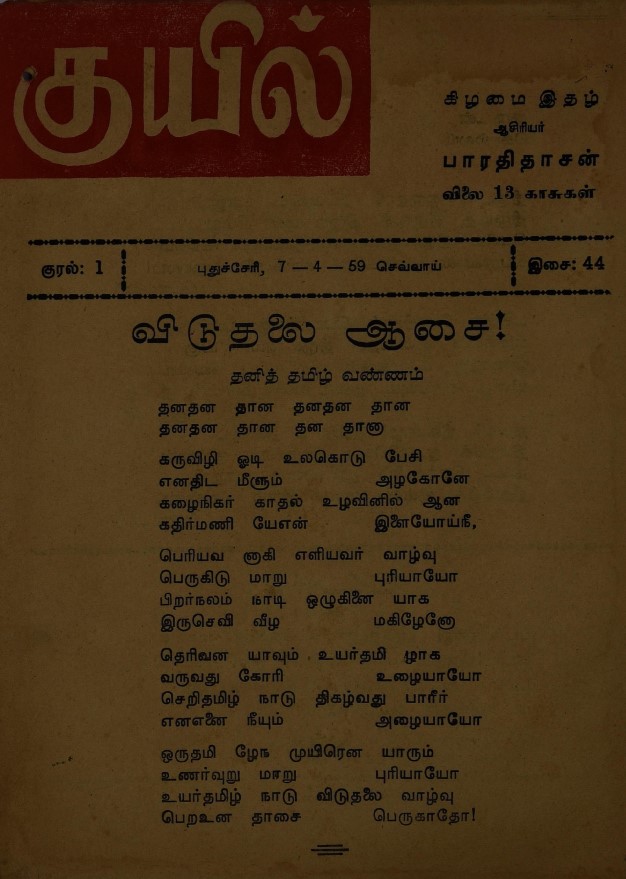 குயில்
கிழமை இதழ்
ஆசிரியர்
பாரதிதாசன்
விலை 13 காசுகள்
குரல்: 1 புதுச்சேரி, 7 — 4 — 59 செவ்வாய் இசை: 44
விடுதலை ஆசை!
தனித் தமிழ் வண்ணம்
தனதன தான தனதன தான
தனதன தான தன தானா
கருவிழி ஓடி உலகொடு பேசி
எனதிட மீளும் அழகோனே
கழைநிகர் காதல் உழவினில் ஆன
கதிர்மணி யேஎன் இளையோய்நீ,
பெரியவ னாகி எளியவர் வாழ்வு
பெருகிடு மாறு புரியாயோ
பிறர்நலம் நாடி ஒழுகினை யாக
இருசெவி வீழ மகிழேனோ
தெரிவன யாவும் உயர்தமி ழாக
வருவது கோரி உழையாயோ
செறிதமிழ் நாடு திகழ்வது பாரீர்
எனஎனை நீயும் அழையாயோ
ஒருதமி ழேந முயிரென யாரும்
உணர்வுறு மாறு புரியாயோ
உயர்தமிழ் நாடு விடுதலை வாழ்வு
பெறஉன தாசை பெருகாதோ!